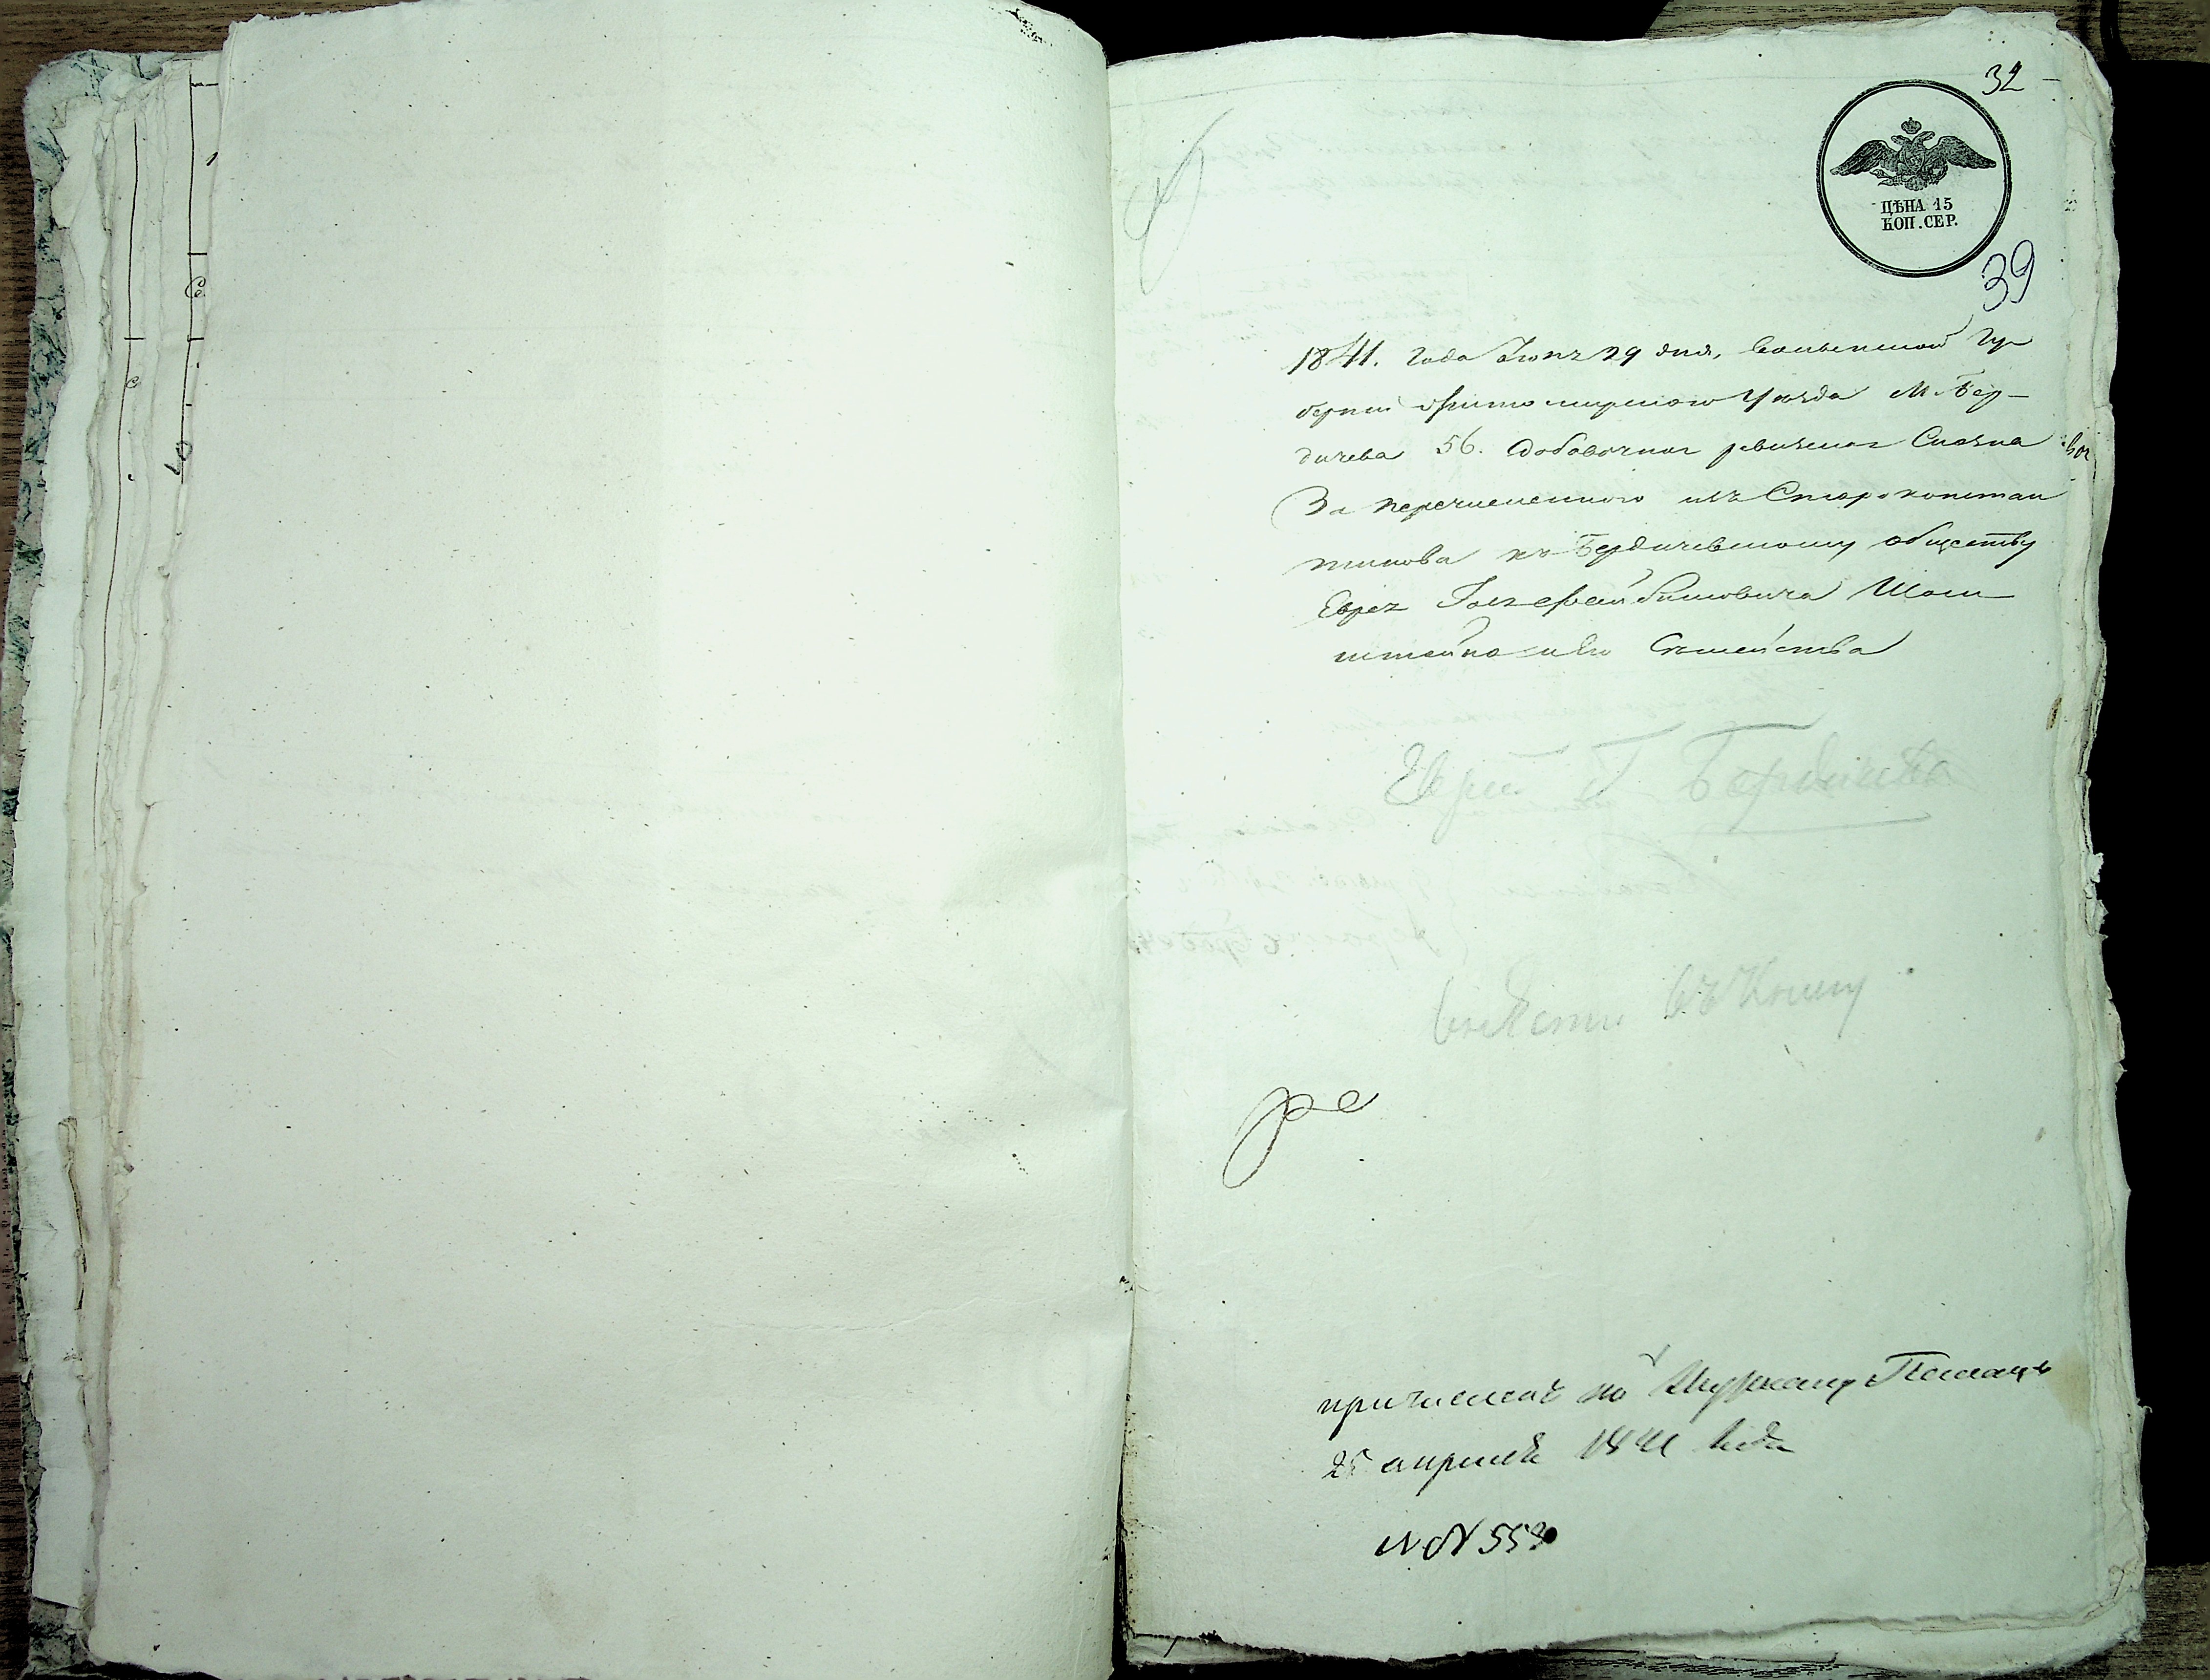 32
ЦѢНА 15
КОП. СЕР.
39
1841. Года Іюня 29 дня, Волынской Гу
берніи Житомирского Уезда М. Бер-
дичева 56. Добовочная ревизская Сказка
За перечисленного изъ Староконстан
тинова къ Бердичевскому обществу
Еврея Шлои
штейна и его Съмейства
Еврей Г Бердичева
внести въ Книгу
причисленъ по Журналу Палаты
25 апреля 1841 Года
№ 553